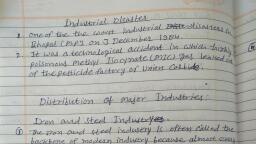 Industrial Disaster
1. One of the the worst industrial disasters in
Bhopal (M.P.) on 3 December 1984.
2. It was a technological accident in which highly
poisonous methyl Isocynate (MIC) gas leaked out
of the pesticide factory of Union Carbide.
Distribution of Major Industries.
Iron and Steel Industry
① The iron and steel industry is often called the
backbone of modern industry because almost every